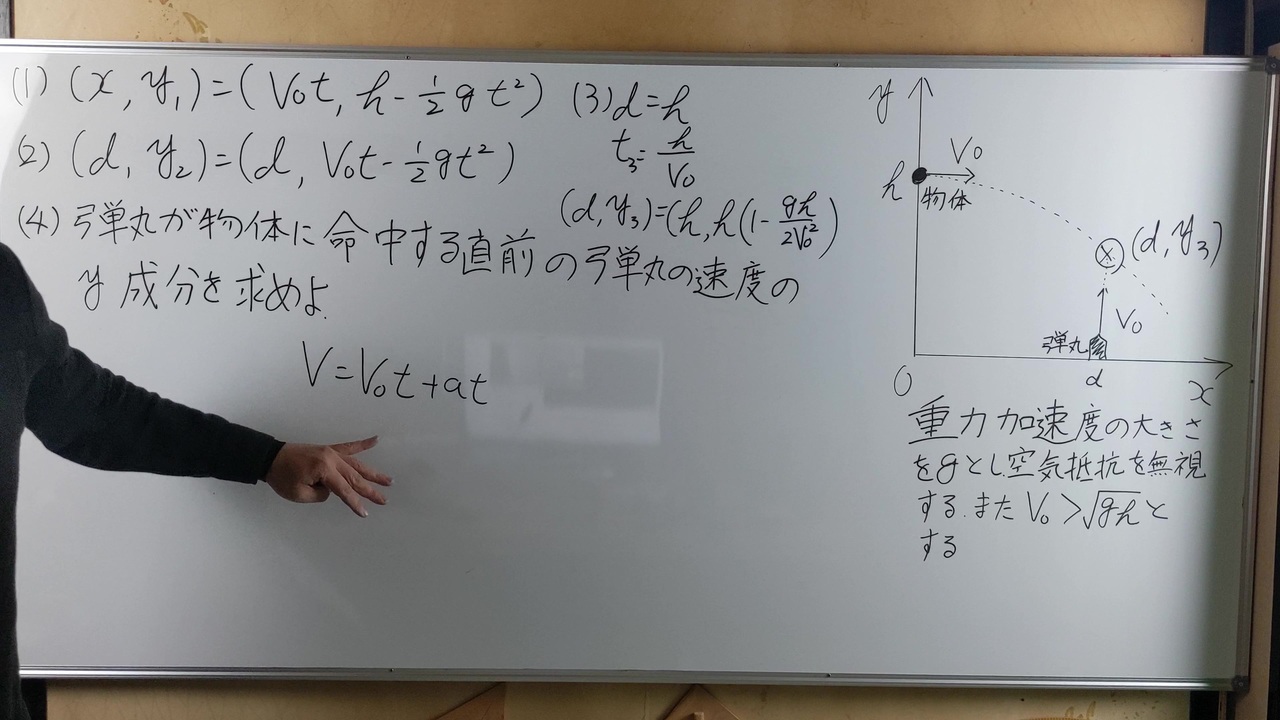 (1) (x, y₁)=(V₀t, h-½gt²)
(2) (d, y₂)=(d, V₀t-½gt²)
(3) d=h
t₃=h/V₀
(d, y₃)=(h, h(1-gh/2V₀²)
(4) 弓弾丸が物体に命中する直前の弓単丸の速度の
y成分を求めよ.
V=V₀t+at
y
h
V₀
物体
(d, y₃)
V₀
弾丸
O
d
x
重力加速度の大きさ
をgとし空気抵抗を無視
する.またV₀>√ghと
する